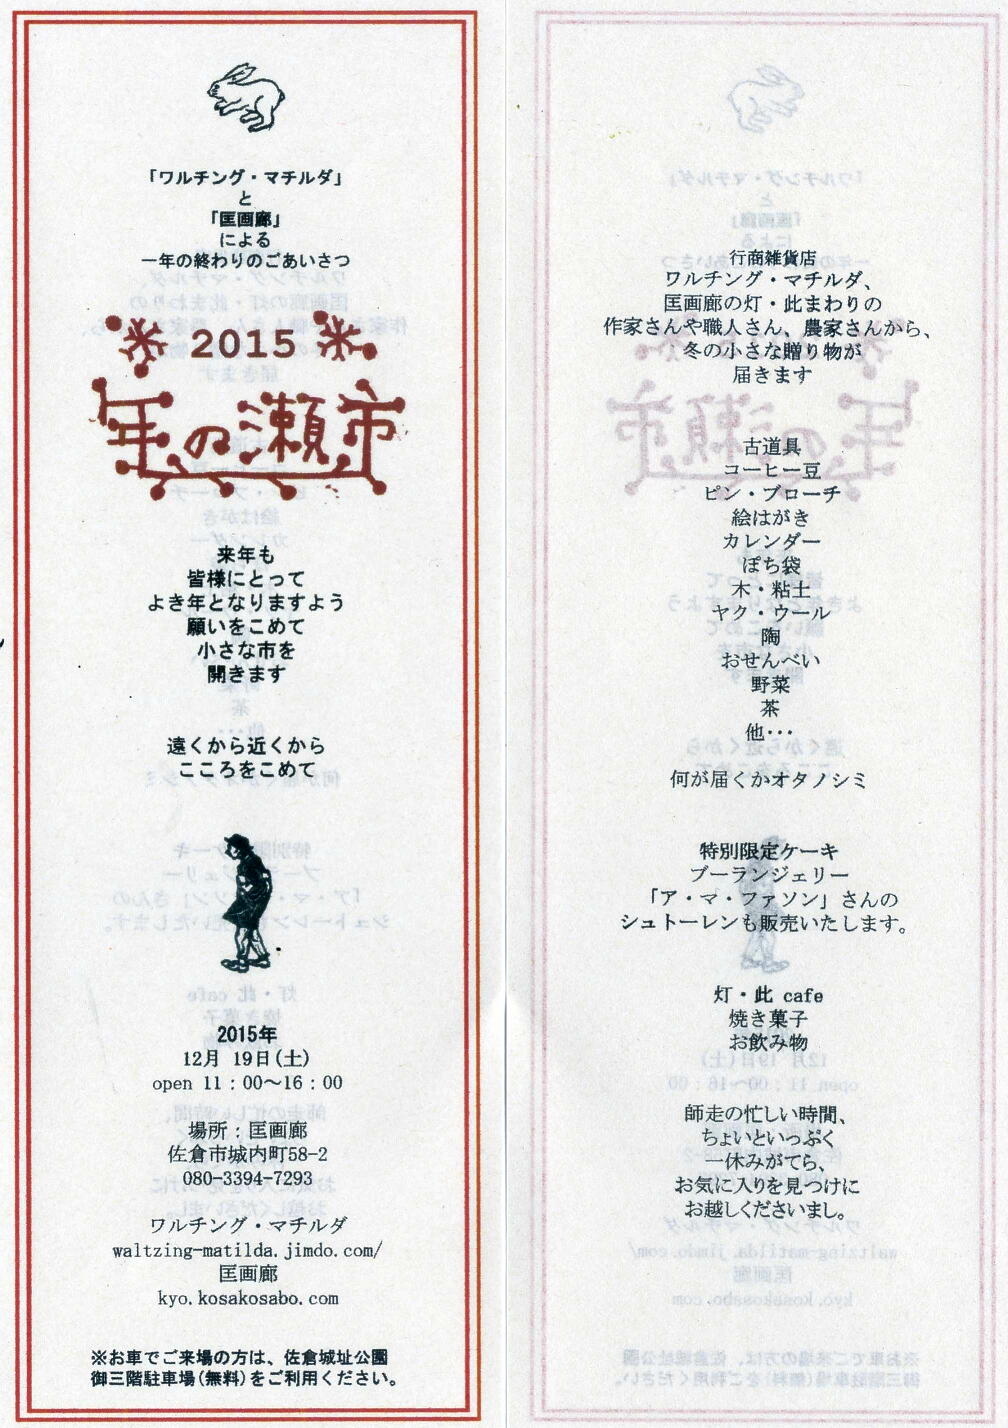 「ワルチング・マチルダ」
と
「匡画廊」
による
一年の終わりのごあいさつ
2015
年の瀬市
来年も
皆様にとって
よき年となりますよう
願いをこめて
小さな市を
開きます
遠くから近くから
こころをこめて
2015年
12月 19日(土)
open 11：00～16：00
場所：匡画廊
佐倉市城内町58-2
080-3394-7293
ワルチング・マチルダ
waltzing-matilda.jimdo.com/
匡画廊
kyo.kosakosabo.com
※お車でご来場の方は、佐倉城址公園
御三階駐車場(無料)をご利用ください。
行商雑貨店
ワルチング・マチルダ、
匡画廊の灯・此まわりの
作家さんや職人さん、農家さんから、
冬の小さな贈り物が
届きます
古道具
コーヒー豆
ピン・ブローチ
絵はがき
カレンダー
ぽち袋
木・粘土
ヤク・ウール
陶
おせんべい
野菜
茶
他・・・
何が届くかオタノシミ
特別限定ケーキ
ブーランジェリー
「ア・マ・ファソン」さんの
シュトーレンも販売いたします。
灯・此 cafe
焼き菓子
お飲み物
師走の忙しい時間、
ちょいといっぷく
一休みがてら、
お気に入りを見つけに
お越しくださいまし。